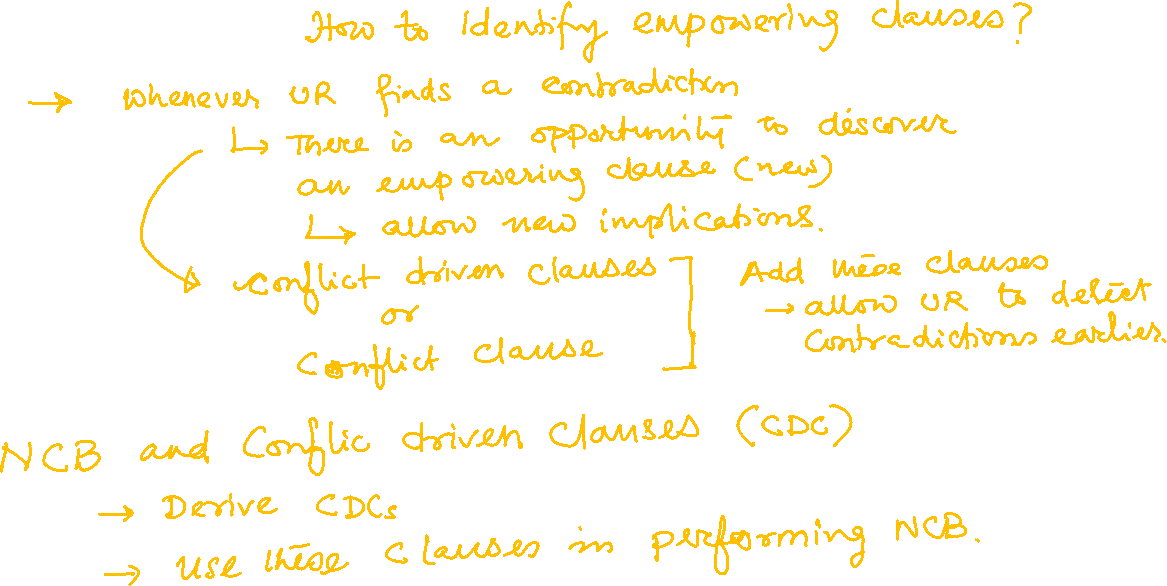 How to Identify empowering clauses?
→ Whenever UR finds a contradiction
↳ There is an opportunity to discover
an empowering clause (new)
↳ allow new implications.
Conflict driven clauses
or
Conflict clause
Add these clauses
→ allow UR to detect
Contradictions earlier.
NCB and Conflic driven clauses (CDC)
→ Derive CDCs
→ Use these clauses in performing NCB.